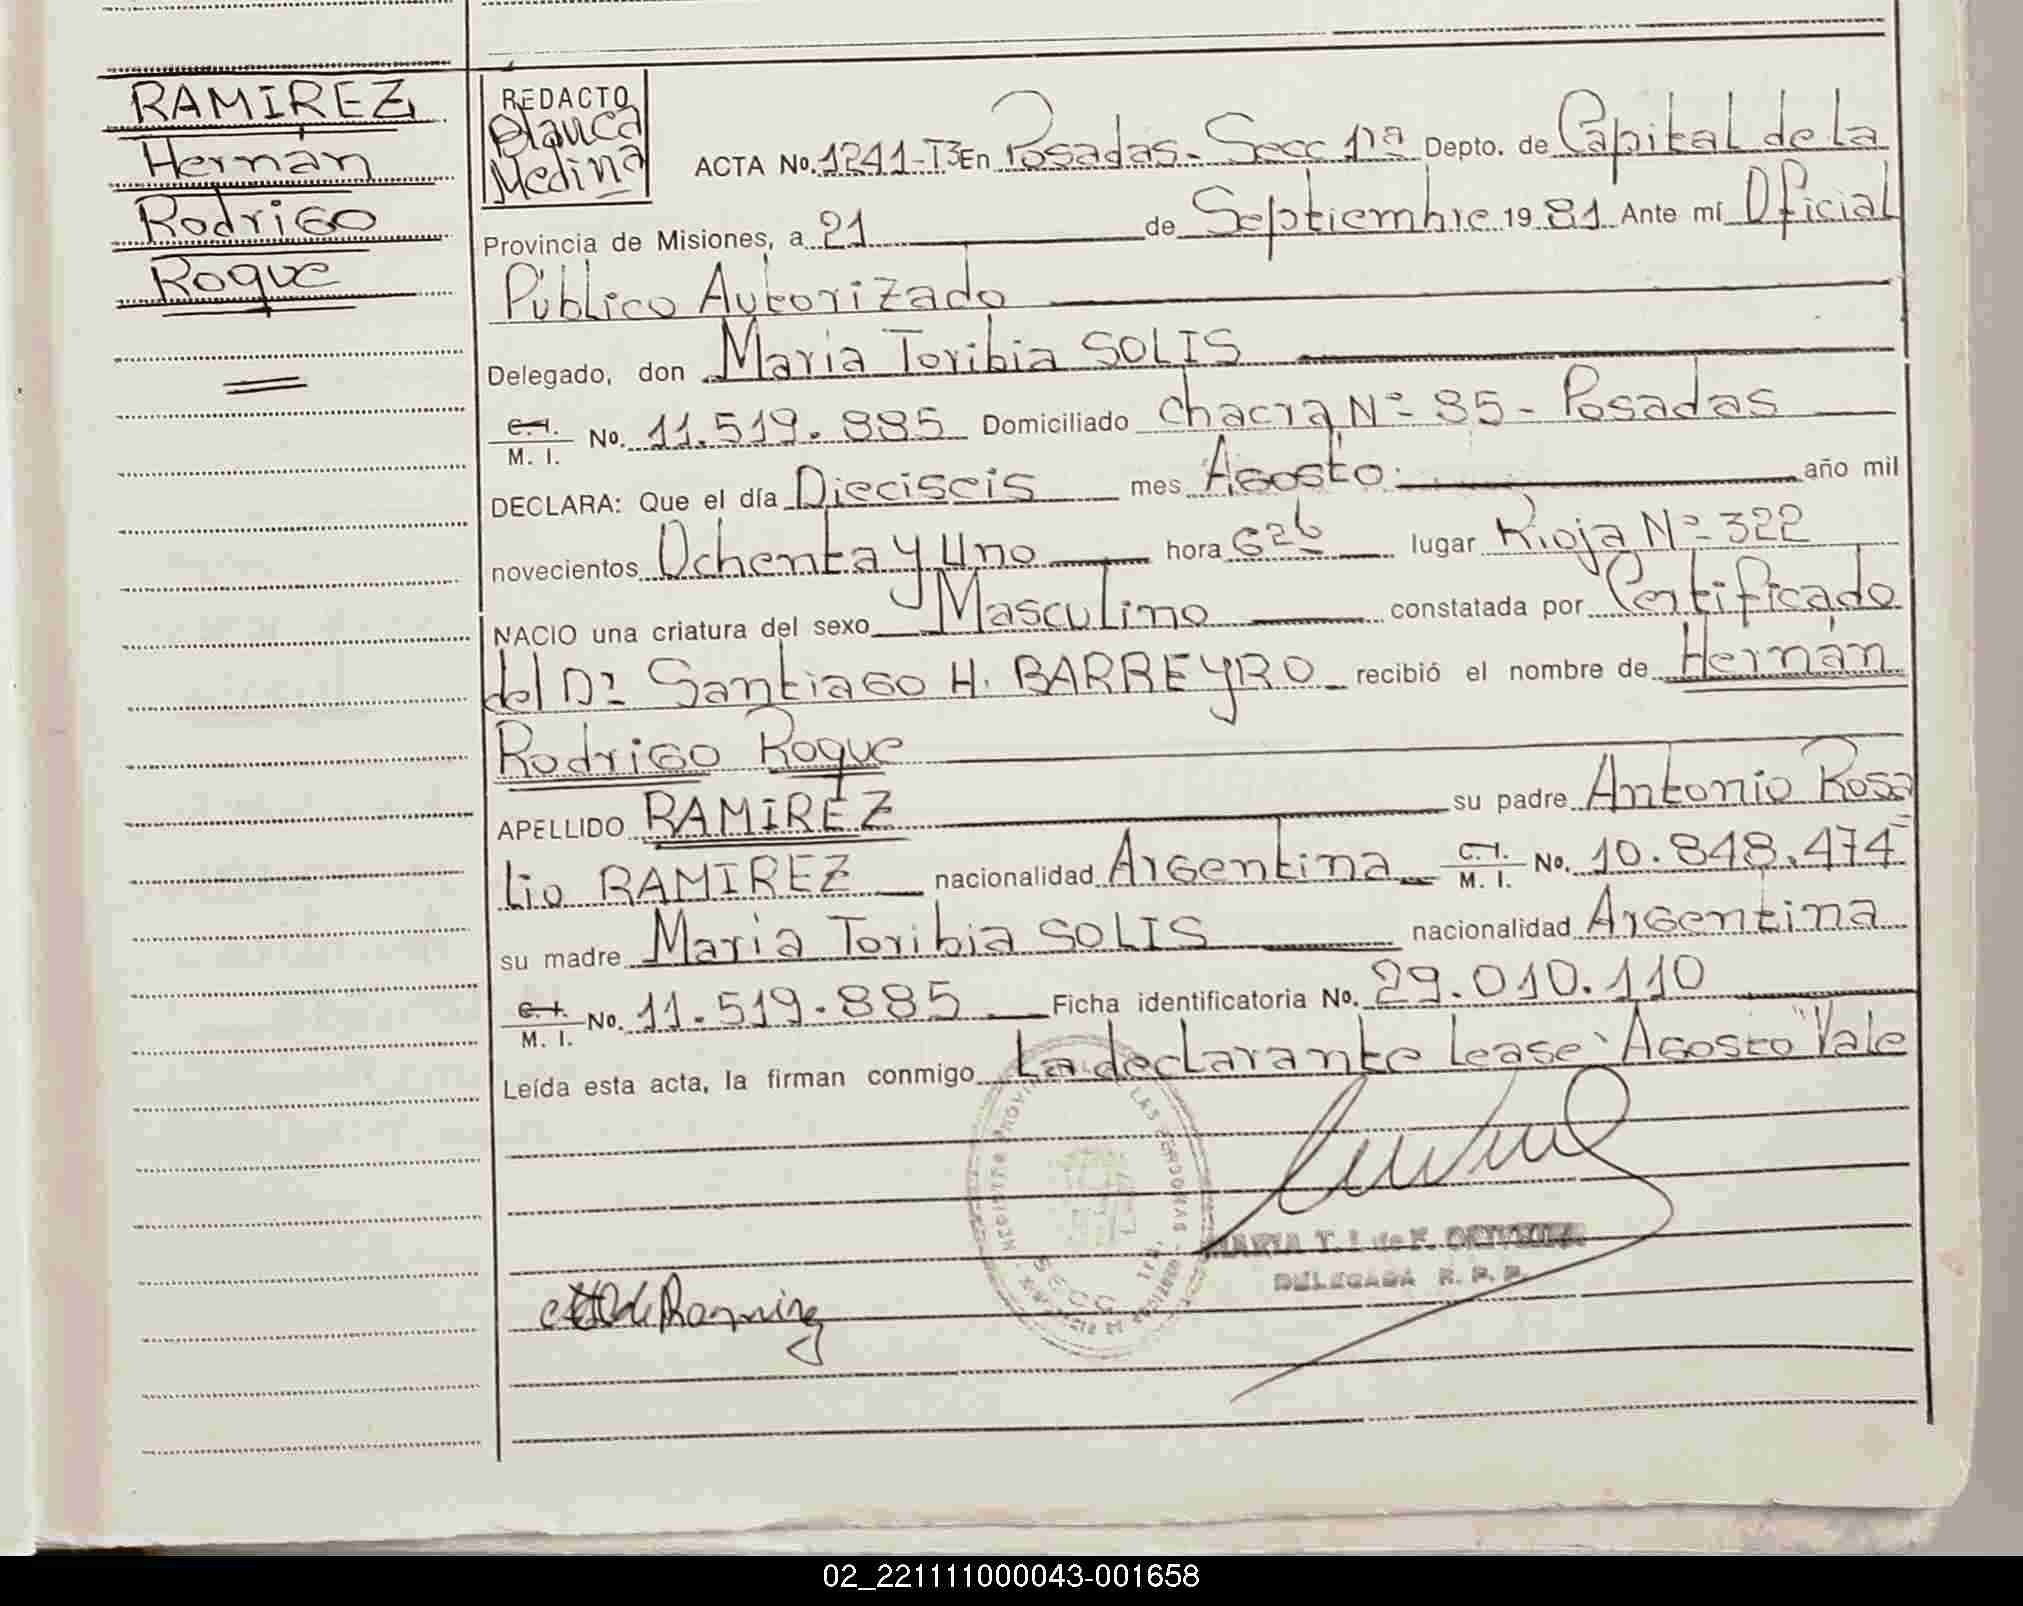 RAMIREZ
Hernán
Rodrigo
Roque
REDACTO
Blanca
Medina
ACTA No. 1241-T3 En Posadas - Secc 1ra Depto. de Capital de la
Provincia de Misiones, a 21 de Septiembre 1981 Ante mí Oficial
Público Autorizado
Delegado, don Maria Toribia SOLIS
C.I. / M. I. No. 11.519.885 Domiciliado Chacra Nº 85 - Posadas
DECLARA: Que el día Dieciseis mes Agosto año mil
novecientos Ochenta y Uno hora 6 26 lugar Rioja Nº 322
NACIO una criatura del sexo Masculino constatada por Certificado
del Dr Santiago H. BARREYRO recibió el nombre de Hernán
Rodrigo Roque
APELLIDO RAMIREZ su padre Antonio Rosa
lio RAMIREZ nacionalidad Argentina C.I. / M. I. No. 10.848.474
su madre Maria Toribia SOLIS nacionalidad Argentina
C.I. / M. I. No. 11.519.885 Ficha identificatoria No. 29.010.110
Leída esta acta, la firman conmigo La declarante Lease "Agosto" Vale
REGISTRO PROVINCIAL LAS PERSONAS
SECC 1ra.
MARIA T.
DELEGADA R. P. P.
de Ramirez
02_221111000043-001658